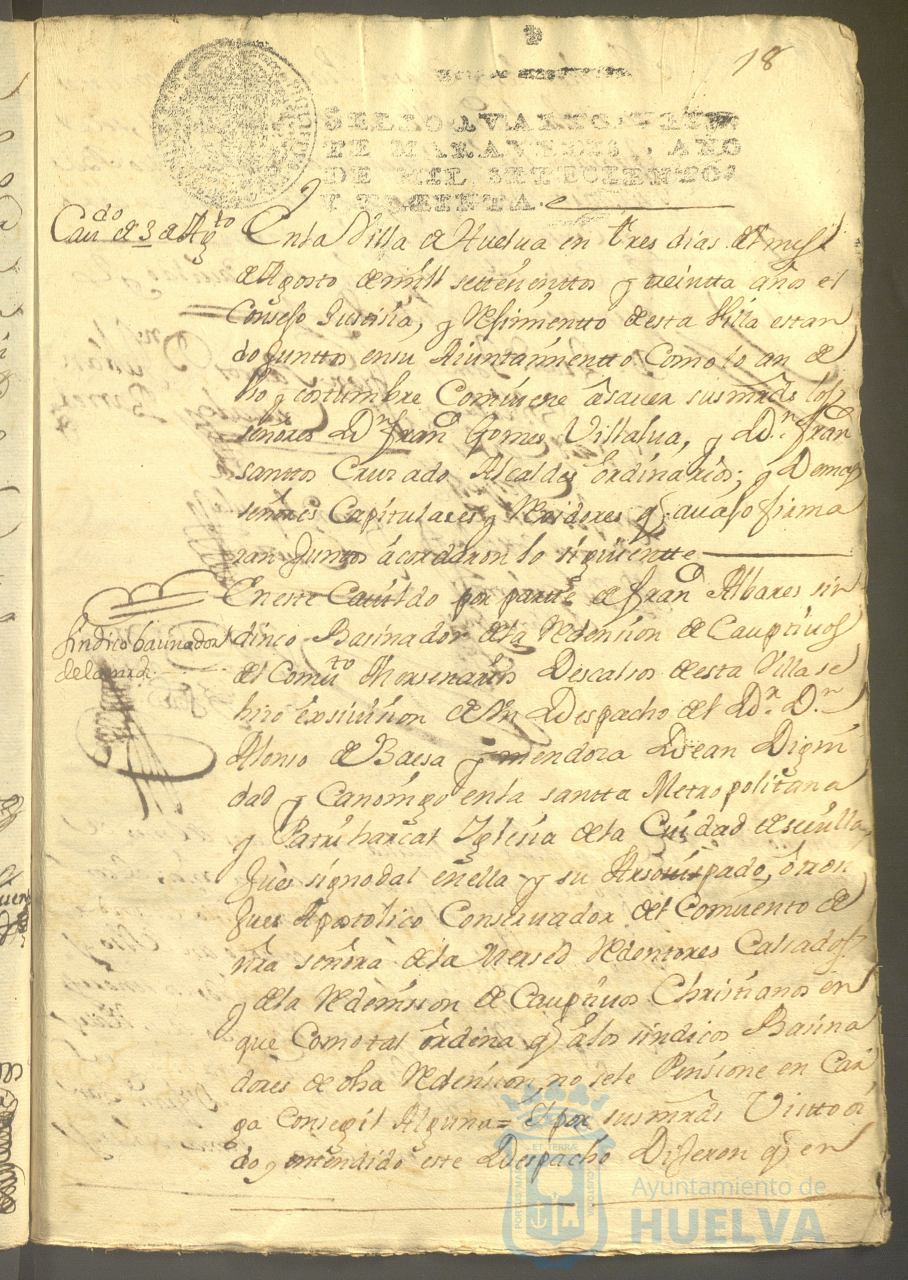 18
SELLO QVARTO, VEIN
TE MARAVEDIS, AÑO
DE MIL SETECIENTOS
Y TREINTA.
Caudo de 3 de Agto
En la Villa de Huelua en tres dias del mes
de Agosto de mill settecienttos y treintta años el
Consejo Justisia, y Rejimientto de esta Villa estan
do juntto en su Aiuntamientto Como lo an de
Vso y costumbre Combiene asauer sus mrds los
señores Dn Franco Gomes Villalua, y Dn Franco
santtos Cruzado Alcaldes ordinarios; y Demas
señores Capitulares y Rexidores q auajo firma
ran Juntos acordaron lo siguientte
En este Cauildo por partte de Franco Albares sin
dico Bacinador de la Redension de Cauptiuos
del Comuto Mersenarios Descalsos de esta Villa se
hizo exsiuision de Vn Despacho del Dr. Dn
Alonso de Baesa y mendoza Dean Digni
dad y Canonigo en la santta Metropolitana
y Patriharcal Iglesia de la Ciudad de seuilla,
Jues signodal en ella y su Arsouispado,
Jues Apostolico Conseruador del Comuento de
nra señora de la Mersed Redentores Calsados
y de la Redemsion de Cauptiuos Christianos en
que Como tal ordena q a los sindicos Basina
dores de dha Redension no se le Pensione en Car
ga Consegil Alguna = Y por sus mrds Vistto oi
do y entendido este Despacho Dijeron q en
sindico bacinador
de la mrd.
Ayuntamiento de
HUELVA